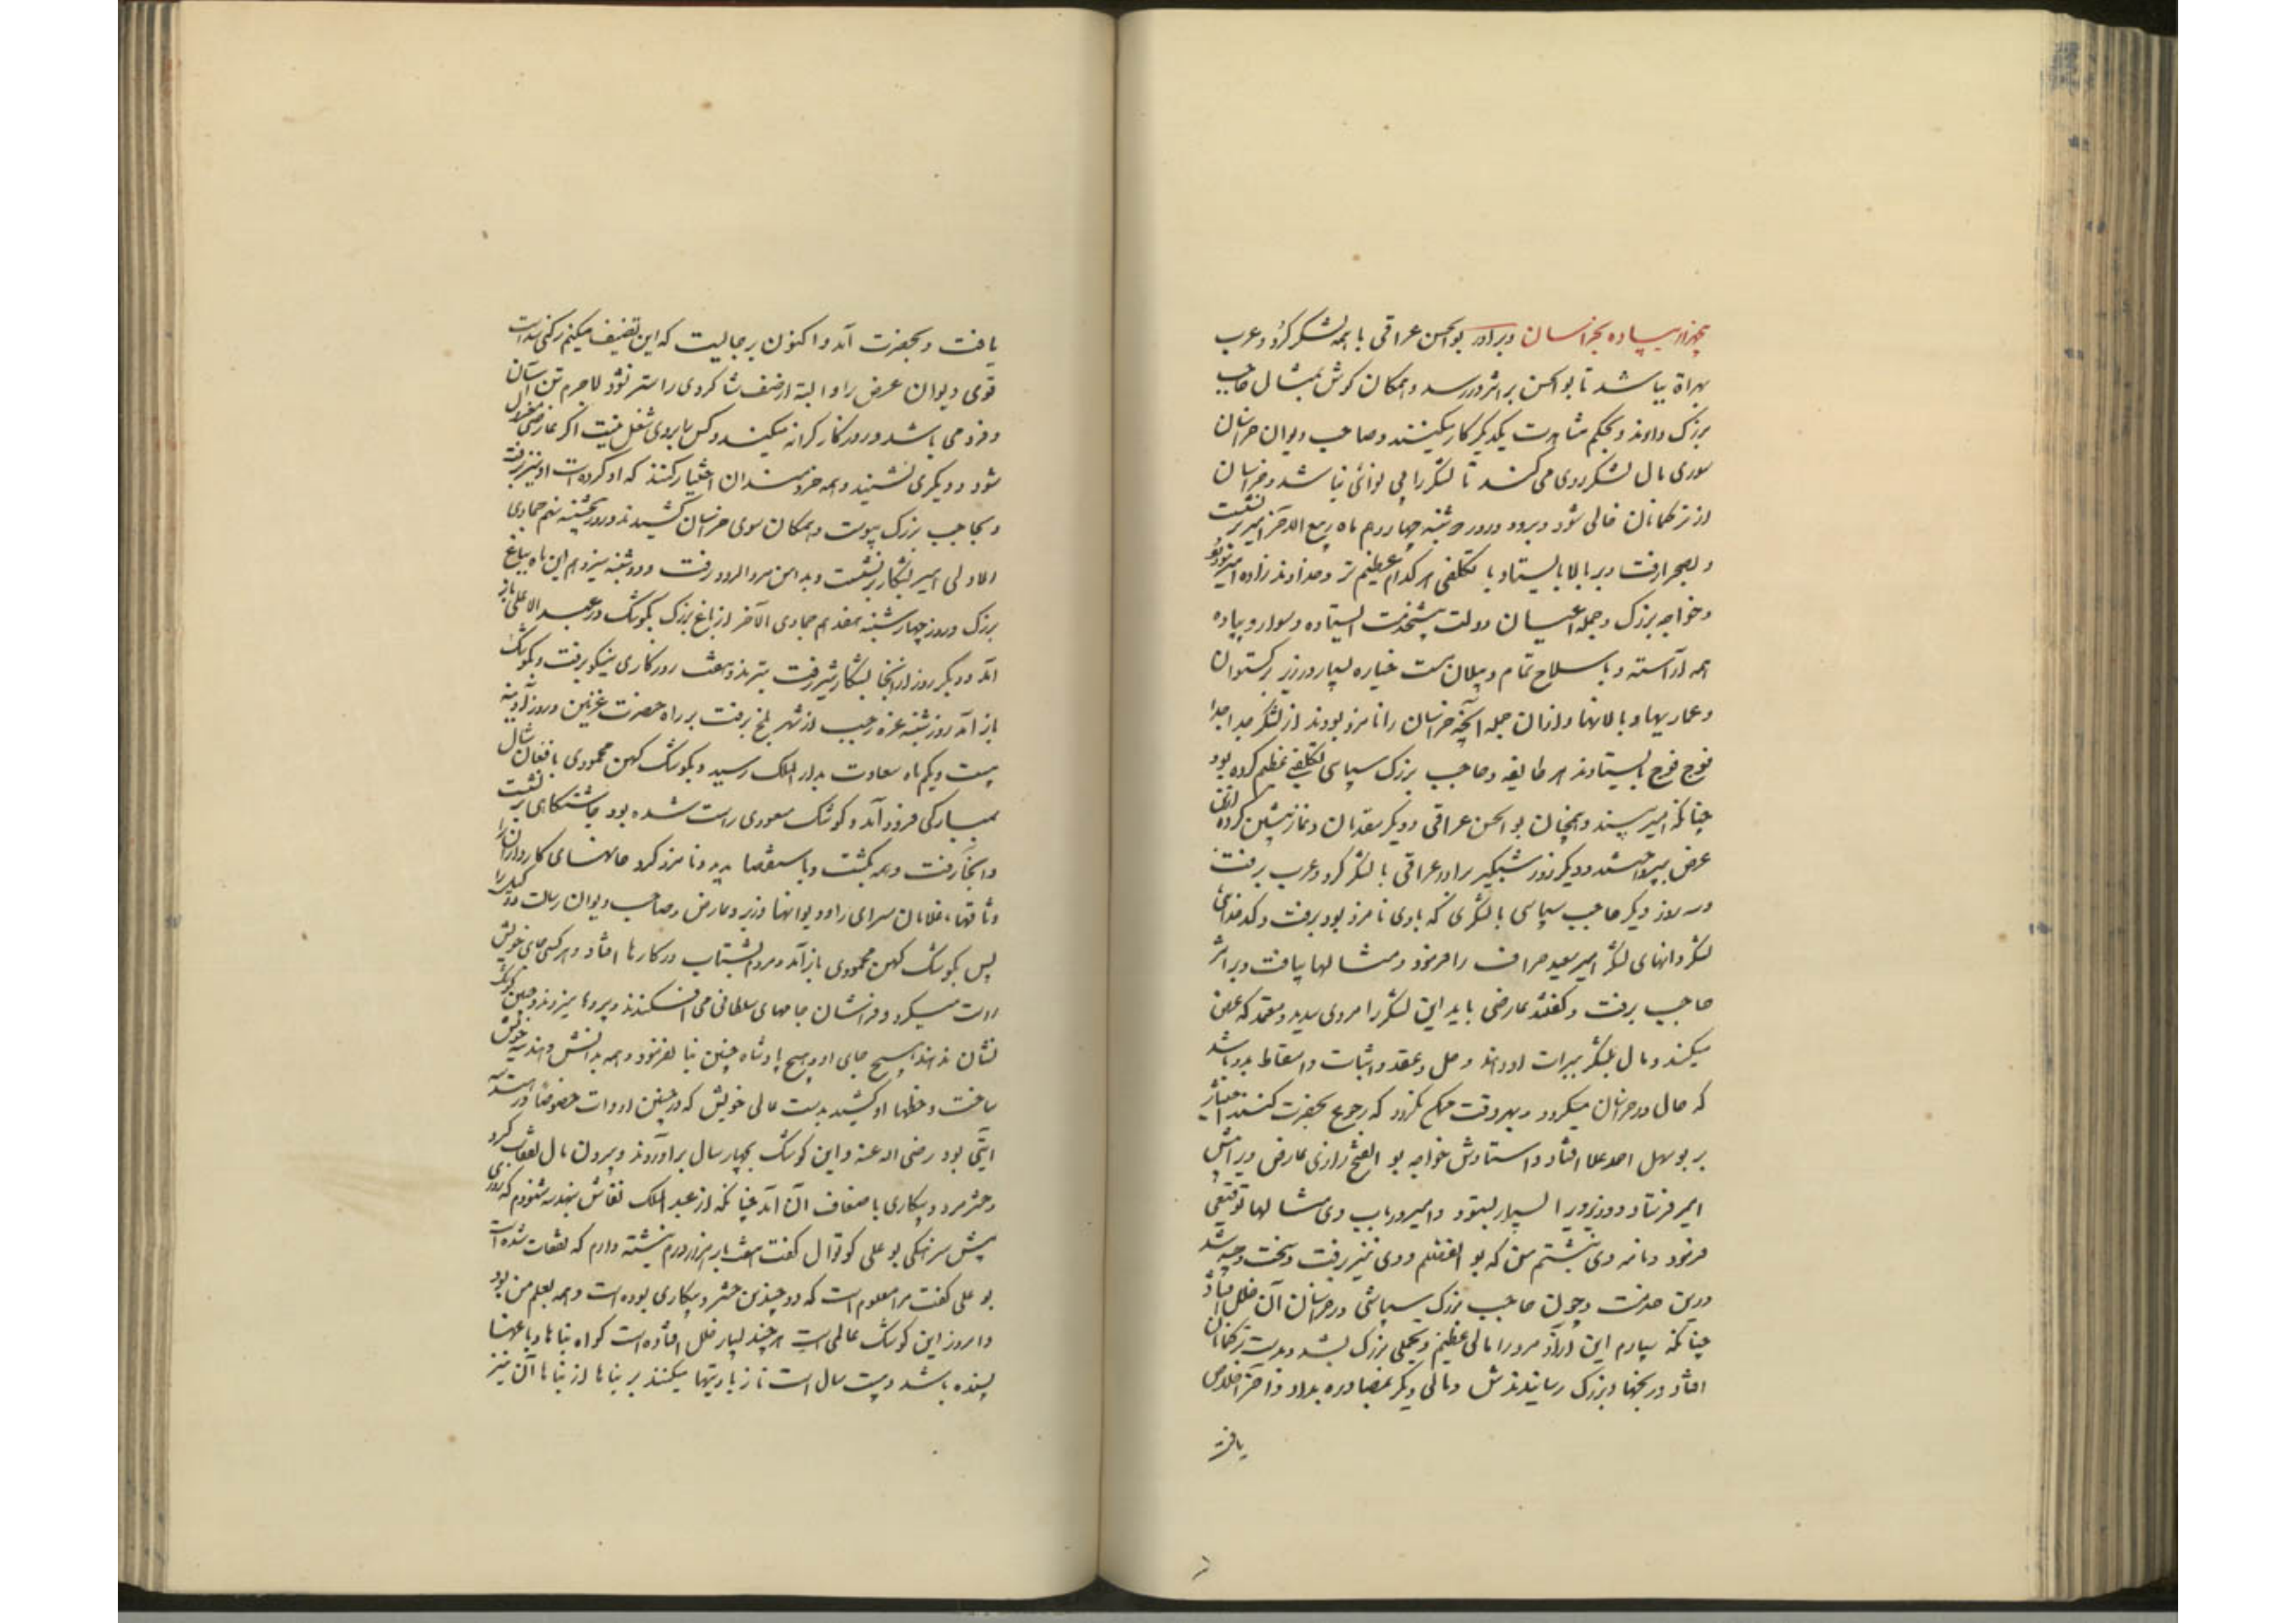 پنجهزار پیاده بخراسان و برادر بوالحسن عراقی با همه لشکر کرد و عرب
بهراة بباشد تا بوالحسن بر اثر در رسد و همکان کوش بمثال حاجب
بزرک دارند و بحکم مشاهدت یکدیکر کار میکنند و صاحب دیوان خراسان
سوری مال لشکر روی می کند تا لشکر را بی نوائی نباشد و خراسان
از ترکمانان خالی شود و برود و روز سه شنبه چهاردهم ماه ربیع الآخر امیر بر نشست
و بصحرا رفت و بر بالا بایستاد با تکلفی هر کدام عظیم تر و خداوند زاده امیر مودود
و خواجه بزرک و جمله اعیان دولت پیشخدمت ایستاده و سوار و پیاده
همه آراسته و با سلاح تمام و پیلان مست خیاره بسیار در زیر برکستوان
و عماریها و بالانها و ازان جمله آنچه خراسان را نامزد بودند از لشکر جدا جدا
فوج فوج بایستادند هر طایفه و حاجب بزرک سپاسی تکلفی عظیم کرده بود
چنانکه امیر بپسندد و همچنان بوالحسن عراقی و دیکر مقدمان و نماز پیشین کرده ازین
عرض بپرداختند و دیکر روز شبکیر برادر عراقی با لشکر کرد و عرب برفت
و سه روز دیکر حاجب سپاسی با لشکری که با وی نامزد بود برفت و کدخدائی
لشکر و انهای لشکر امیر سعید صراف را فرمود و مثالها بیافت و بر اثر
حاجب برفت و کفتند عارضی باید این لشکر را مردی سدید و معتمد که عرض
میکند و مال بلشکر ببرات او دهند و حل و عقد و اثبات و اسقاط بدو باشد
که حال در خراسان میکردد و بهر وقت ممکن نکردد که رجوع بحضرت کنند اختیار
بر بوسهل احمد علا افتاد و استادش خواجه بو الفتح رازی عارض ویرا پیش
امیر فرستاد و وزیر ویرا بسیار بستود و امیر در باب وی مثالها توقیعی
فرمود و نامه وی نبشتم من که بو الفضلم و وی نیز برفت و سخت وجیه شد
درین خدمت و چون حاجب بزرک سپاشی در خراسان آن خلل افتاد
چنانکه بیارم این آزاد مرد را مالی عظیم و تجملی بزرک بشد و بدست ترکمانان
افتاد و رنجها و بزرک رسانیدندش و مالی دیکر بمصادره بداد و آخر خلاص
یافت
یافت و بحضرت آمد و اکنون بر جالیت که این تصنیف میکنم رکنی شده است
قوی دیوان عرض را و البته از ضعف شاکردی را ستر نؤد لاجرم تن آسان
و فزو می باشد و روزکار کرانه میکند و کس با بروی شغل نیست اکر عارضی معزول
شود و دیکری نشیند و همه خردمندان اختیار کنند که او کرده است او نیز برفت
و بحاجب بزرک پیوست و همکان سوی خراسان کشیدند و روز پنجشنبه نهم جمادی
الاولی امیر بشکار برنشست و بدامن مرو الرود رفت و دوشنبه سیزدهم این ماه بباغ
بزرک و روز چهارشنبه هفدهم جمادی الآخر از باغ بزرک بکوشک در عبد الاعلی باز
آمد و دیکر روز از آنجا بشکار شیر رفت بترمذ و هفت روزکاری نیکو برفت و بکوشک
باز آمد روز شنبه غره رجب از شهر بلخ برفت بر راه حضرت غزنین و روز آدینه
بیست و یکم ماه سعادت بدار الملک رسید و بکوشک کهن محمودی بافغان شال
بمبارکی فرود آمد و کوشک مسعودی راست شده بود چاشتکاهی بر نشست
و آنجا رفت و همه بکشت و باستقصا بدید و نامزد کرد خانهای کارداران را
وثاقها، غلامان سرای را و دیوانها وزیر و عارض و صاحب دیوان رسالت و وکیل را
پس بکوشک کهن محمودی باز آمد و مردم بشتاب در کارها افتاد و هر کس جای خویش
راست میکرد و فراشان جامهای سلطانی می افکندند و پردها میزدند و چنین کوشک
نشان ندهند هیچ جای او و هیچ پادشاه چنین بنا نفرمود و همه بدانش و هندسه خویش
ساخت و خطها او کشید بدست عالی خویش که در چنین ادوات خصوصاً در هندسه
آیتی بود رضی الله عنه و این کوشک بچهار سال برآوردند و بیرون مال نفقات کرد
و حشر مرد و بیکاری باضعاف آن آمد چنانکه از عبد الملک نقاش مهندس شنودم که روزی
پیش سرهنکی بو علی کوتوال کفت هفت بار هزار هزار درم نبشته دارم که نفقات شده است
بو علی کفت مرا معلوم است که دو چندین حشر و بیکاری بوده است و همه بعلم من بود
و امروز این کوشک عالمی است هر چند بسیار خلل افتاده است کواه بناها و باغهنا
بسنده باشد و بیست سال است تا زیادتیها میکنند بر بناها از بناها آن نیز